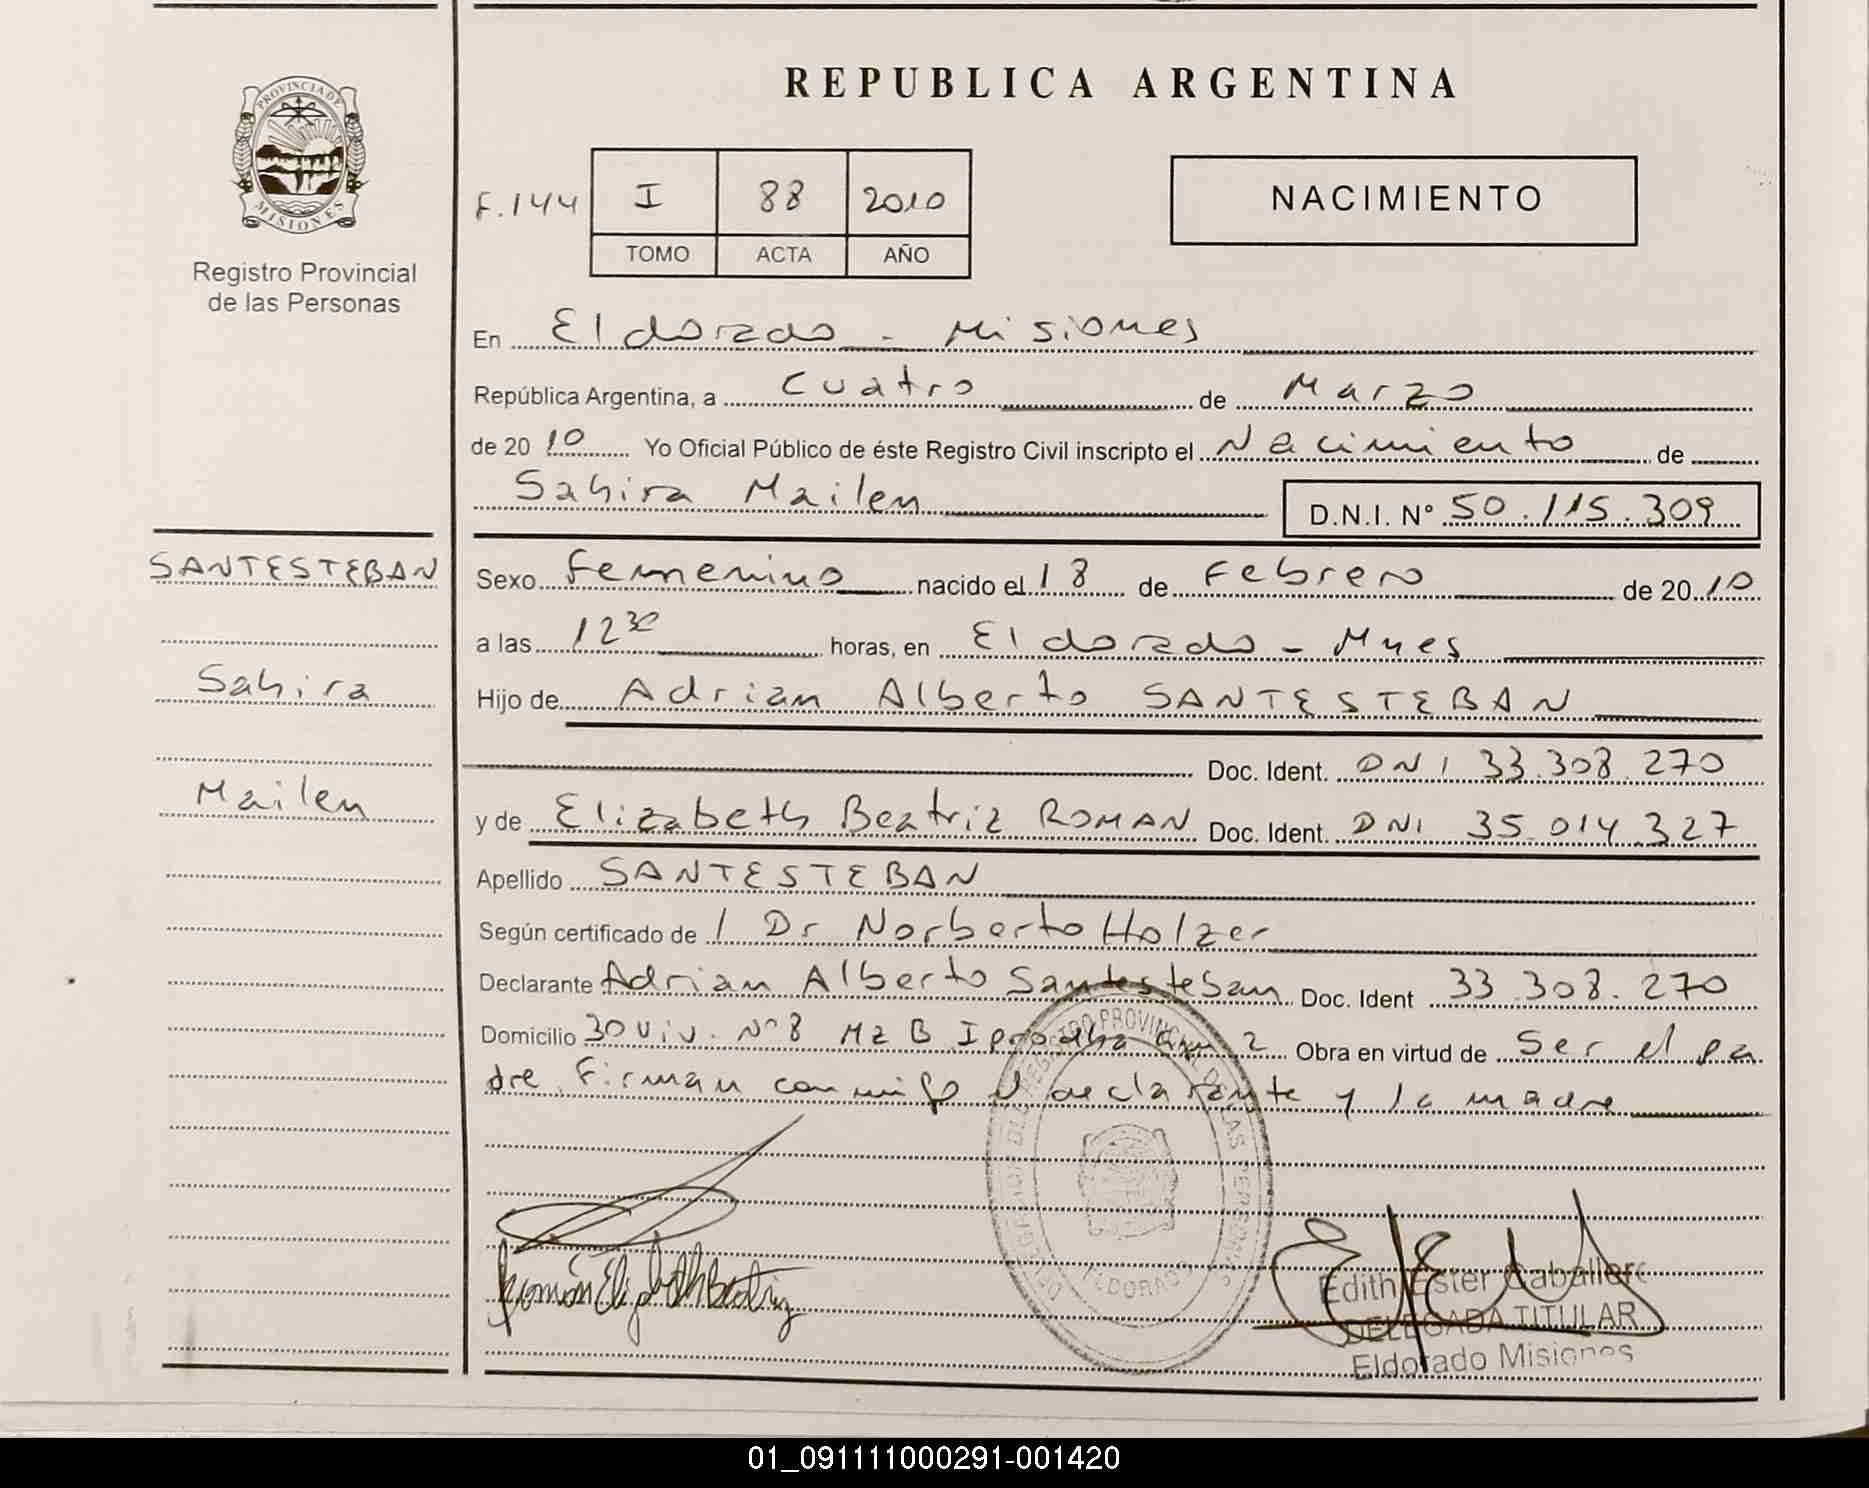 REPUBLICA ARGENTINA
PROVINCIA DE MISIONES
Registro Provincial
de las Personas
F.144
I 88 2010
TOMO ACTA AÑO
NACIMIENTO
En Eldorado - Misiones
República Argentina, a Cuatro de Marzo
de 2010 Yo Oficial Público de éste Registro Civil inscripto el Nacimiento de
Sahira Mailen D.N.I. N° 50.115.309
SANTESTEBAN
Sahira
Mailen
Sexo Femenino nacido el 18 de Febrero de 2010
a las 12 30 horas, en Eldorado - Mnes
Hijo de Adrian Alberto SANTESTEBAN
Doc. Ident. DNI 33.308.270
y de Elizabeth Beatriz ROMAN Doc. Ident. DNI 35.014.327
Apellido SANTESTEBAN
Según certificado de / Dr Norberto Holzer
Declarante Adrian Alberto Santesteban Doc. Ident 33.308.270
Domicilio 30 Viv. N°8 Mz B 2 Obra en virtud de Ser el pa
dre. Firman conmigo el declarante y la madre
REGISTRO PROVINCIAL DE LAS PERSONAS
ELDORADO
Román Elizabeth Beatriz
Edith Ester Caballero
DELEGADA TITULAR
Eldorado Misiones
01_091111000291-001420